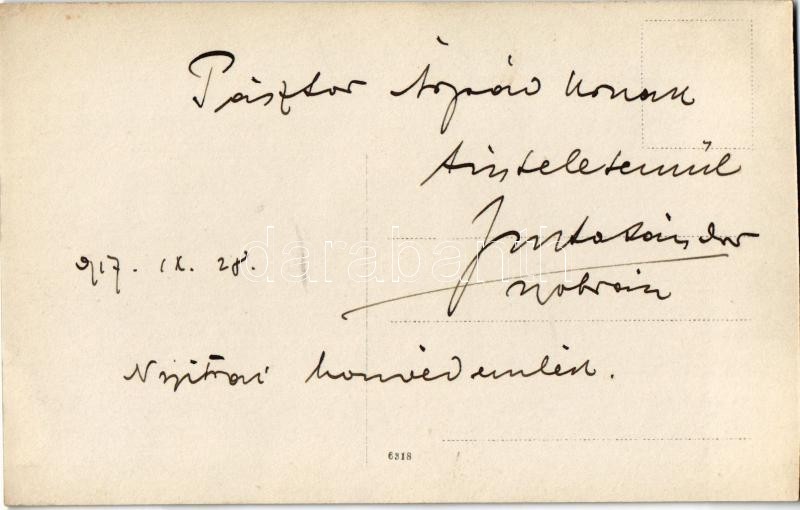 Pásztor Árpád Urnak
tiszteletemül
Jukta Sándor
szobrász
917. IX. 28.
Nyitrai honvédemlék.
6318
darabanth